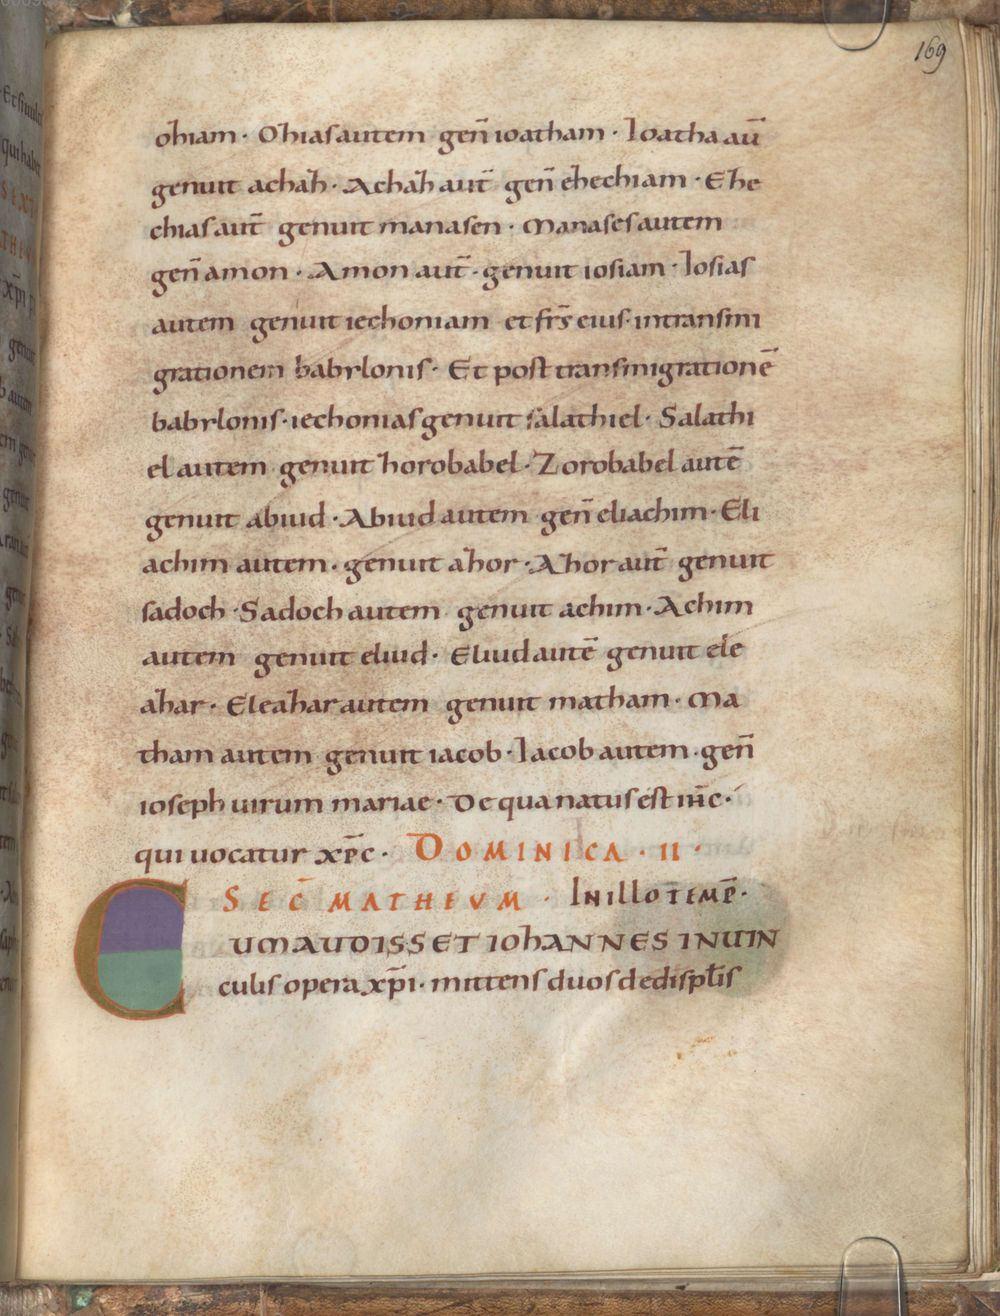 169
oħiam · Oħiasautem geñ ioatham · Ioatha aū
genuit achaħ · Achaħ aut̄ geñ eħechiam · Eħe
chias aut̄ genuit manasen · Manases autem
geñ amon · Amon aut̄ · genuit iosiam · Iosias
autem genuit iechoniam et fr̄s eius · intransmi
grationem babylonis · Et post transmigrationē
babylonis · iechonias genuit salathiel · Salathi
el autem genuit ħorobabel · Zorobabel autē
genuit abiud · Abiud autem geñ eliachim · Eli
achim autem · genuit aħor · Aħor aut̄ genuit
sadoch · Sadoch autem genuit achim · Achim
autem genuit eliud · Eliud autē genuit ele
aħar · Eleaħar autem genuit matham · Ma
tham autem genuit iacob · Iacob autem · geñ
ioseph uirum mariae · De qua natus est ih̄c ·
qui uocatur xp̄c · DOMINICA · II ·
SEC̄ MATHEVM · IN ILLO TEMP̄ ·
CUM AUDISSET IOhANNES IN UIN
culis opera xp̄i · mittens duos de discpl̄is